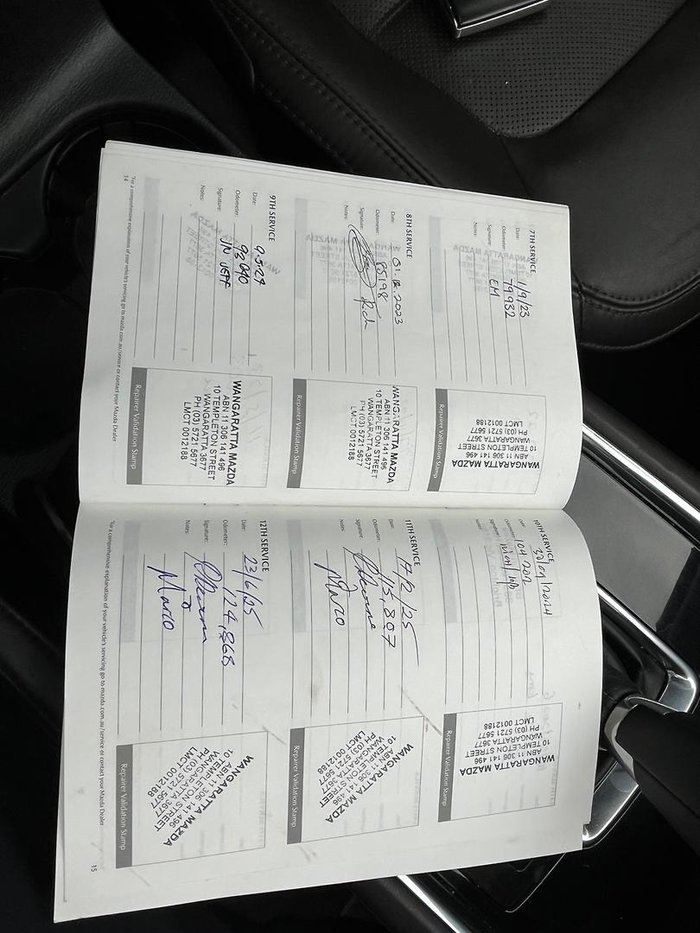 7TH SERVICE
Date: 1/9/23
Odometer: 79932
Signature: EM
Notes:
WANGARATTA MAZDA
ABN 11 306 141 496
10 TEMPLETON STREET
WANGARATTA 3677
PH (03) 5721 5677
LMCT 0012188
Repairer Validation Stamp
8TH SERVICE
Date: 01.12.2023
Odometer: 85198
Signature:
Notes:
WANGARATTA MAZDA
ABN 11 306 141 496
10 TEMPLETON STREET
WANGARATTA 3677
PH (03) 5721 5677
LMCT 0012188
Repairer Validation Stamp
9TH SERVICE
Date: 9.5.24
Odometer: 93090
Signature:
Notes:
WANGARATTA MAZDA
ABN 11 306 141 496
10 TEMPLETON STREET
WANGARATTA 3677
PH (03) 5721 5677
LMCT 0012188
Repairer Validation Stamp
*For a comprehensive explanation of your vehicle's servicing go to mazda.com.au/service or contact your Mazda Dealer
14
10TH SERVICE
Date:
Odometer: 104202
Signature:
Notes:
WANGARATTA MAZDA
ABN 11 306 141 496
10 TEMPLETON STREET
WANGARATTA 3677
PH (03) 5721 5677
LMCT 0012188
Repairer Validation Stamp
11TH SERVICE
Date: 17/2/25
Odometer: 115,807
Signature:
Notes: Marco
WANGARATTA MAZDA
ABN 11 306 141 496
10 TEMPLETON STREET
WANGARATTA 3677
PH (03) 5721 5677
LMCT 0012188
Repairer Validation Stamp
12TH SERVICE
Date: 23/6/25
Odometer: 124,868
Signature:
Notes: Marco
WANGARATTA MAZDA
ABN 11 306 141 496
10 TEMPLETON STREET
WANGARATTA 3677
PH (03) 5721 5677
LMCT 0012188
Repairer Validation Stamp
*For a comprehensive explanation of your vehicle's servicing go to mazda.com.au/service or contact your Mazda Dealer
15